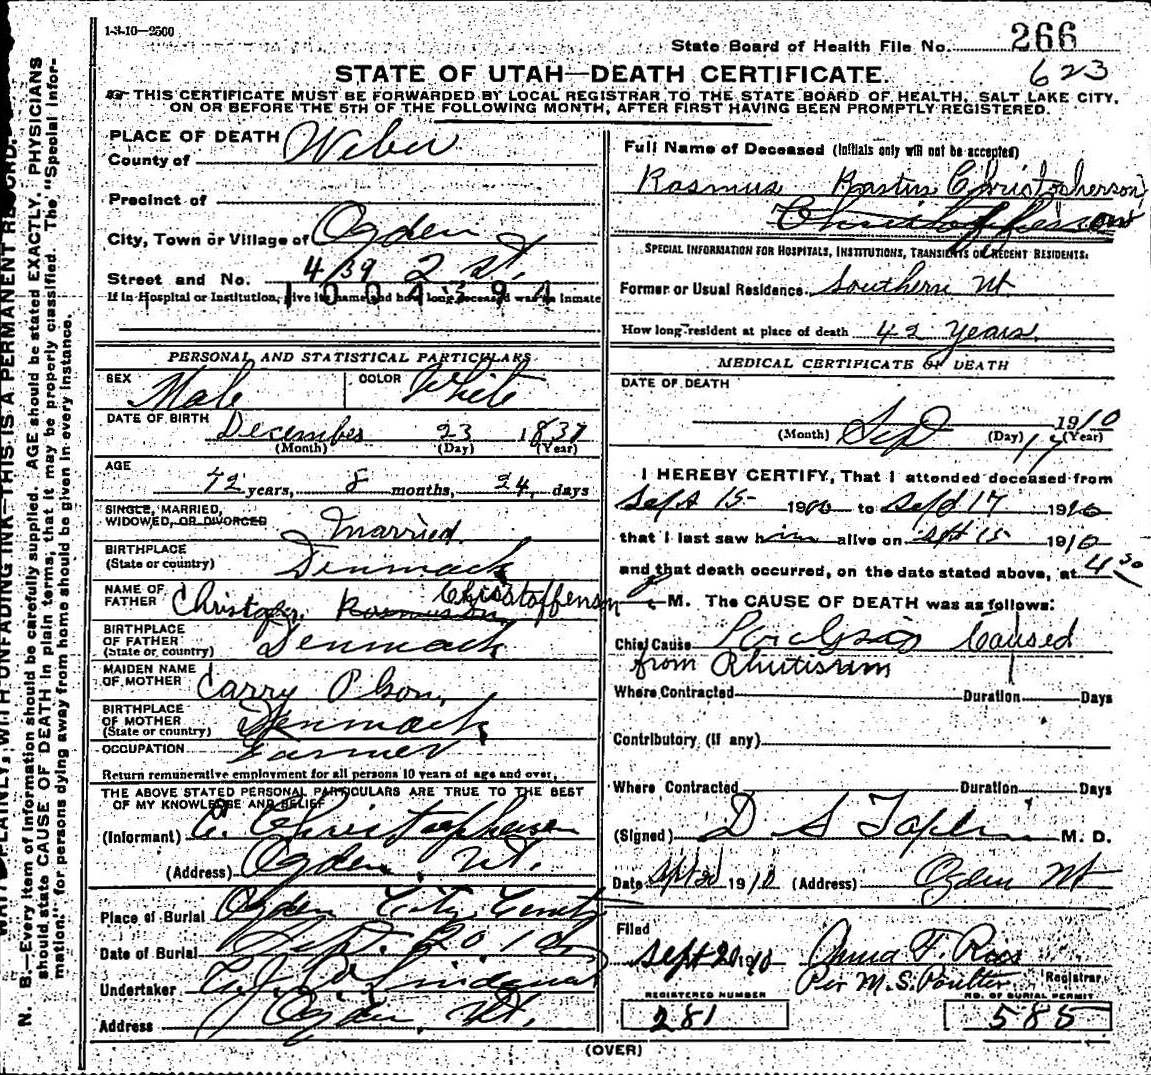 1-3-10-2500
State Board of Health File No. 266
623
STATE OF UTAH—DEATH CERTIFICATE.
THIS CERTIFICATE MUST BE FORWARDED BY LOCAL REGISTRAR TO THE STATE BOARD OF HEALTH, SALT LAKE CITY,
ON OR BEFORE THE 5TH OF THE FOLLOWING MONTH, AFTER FIRST HAVING BEEN PROMPTLY REGISTERED.
N. B.—Every item of information should be carefully supplied. AGE should be stated EXACTLY. PHYSICIANS
should state CAUSE OF DEATH in plain terms, that it may be properly classified. The "Special Infor-
mation" for persons dying away from home should be given in every instance.
PLAINLY, WITH UNFADING INK—THIS IS A PERMANENT RECORD.
PLACE OF DEATH
County of Weber
Precinct of
City, Town or Village of Ogden
Street and No. 439 2 St.
If in Hospital or Institution, give its name and how long deceased was an inmate
PERSONAL AND STATISTICAL PARTICULARS
SEX Male COLOR White
DATE OF BIRTH December 23 1837
(Month) (Day) (Year)
AGE 72 years, 8 months, 24, days
SINGLE, MARRIED,
WIDOWED, OR DIVORCED Married.
BIRTHPLACE
(State or country) Denmark
NAME OF
FATHER Christopher Rasmuson Chisstoffenson
BIRTHPLACE
OF FATHER
(State or country) Denmark
MAIDEN NAME
OF MOTHER Carry Olson,
BIRTHPLACE
OF MOTHER
(State or country) Denmark
OCCUPATION Farmer
Return remunerative employment for all persons 10 years of age and over.
THE ABOVE STATED PERSONAL PARTICULARS ARE TRUE TO THE BEST
OF MY KNOWLEDGE AND BELIEF
(Informant) Christophersen
(Address) Ogden, Ut.
Place of Burial Ogden City
Date of Burial Sept. 20 10
Undertaker Lindquist
Address Ogden, Ut.
Full Name of Deceased (Initials only will not be accepted)
Rasmus Christopherson
Christoffersen
SPECIAL INFORMATION FOR HOSPITALS, INSTITUTIONS, TRANSIENTS OR RECENT RESIDENTS.
Former or Usual Residence Southern Ut
How long resident at place of death 42 Years.
MEDICAL CERTIFICATE OF DEATH
DATE OF DEATH
Sep 17 1910
(Month) (Day) (Year)
I HEREBY CERTIFY, That I attended deceased from
Sept 15 1910 to Sept 17 1910
that I last saw him alive on Sept 15 1910
and that death occurred, on the date stated above, at 4 30
M. The CAUSE OF DEATH was as follows:
Chief Cause Caused
from Rhutisium
Where Contracted Duration Days
Contributory (If any)
Where Contracted Duration Days
(Signed) D S M. D.
Date Sept 1910 (Address) Ogden Ut
Filed
Sept 20 1910 Anna F. Roos
Per M. S. Poulter Registrar
REGISTERED NUMBER
281
NO. OF BURIAL PERMIT
585
(OVER)